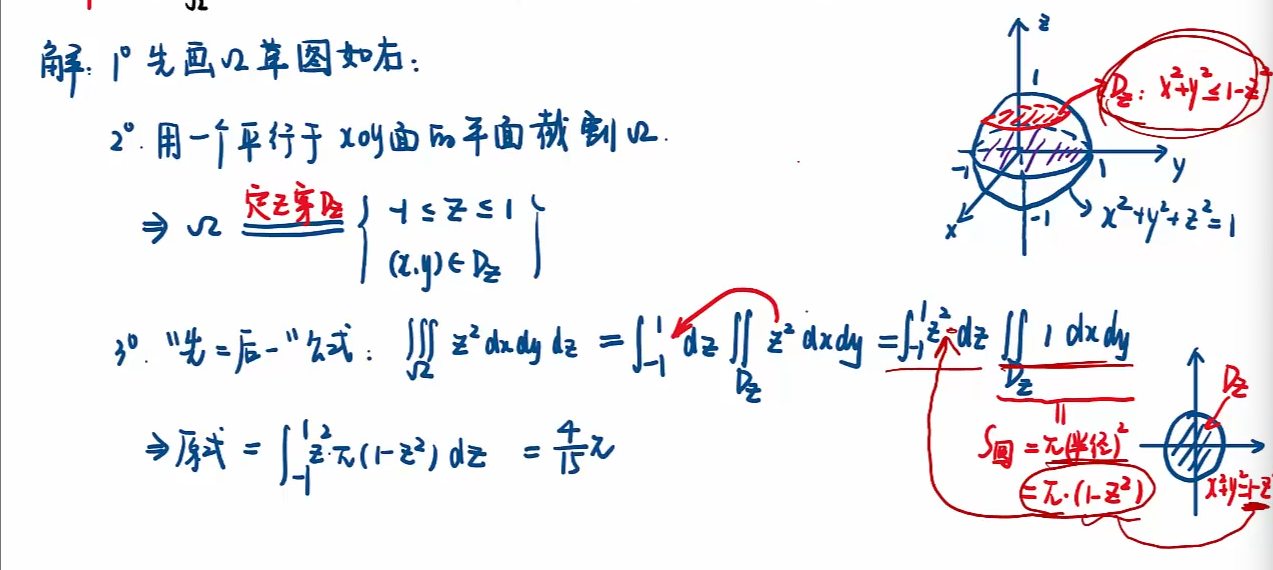 Ω
解: 1° 先画Ω草图如右:
2°. 用一个平行于xoy面的平面截割Ω.
⇒ Ω 定z穿Dz { -1 ≤ z ≤ 1
(x,y)∈Dz }
3°. "先二后一"公式: ∭Ω z² dx dy dz = ∫₋₁¹ dz ∬Dz z² dx dy = ∫₋₁¹ z² · dz ∬Dz 1 dx dy
⇒ 原式 = ∫₋₁¹ z² · π(1-z²) dz = 4/15 π
S圆 = π(半径)²
= π·(1-z²)
z
1
Dz: x²+y² ≤ 1-z²
-1
1
y
x
-1
x²+y²+z²=1
Dz
x²+y²=1-z²